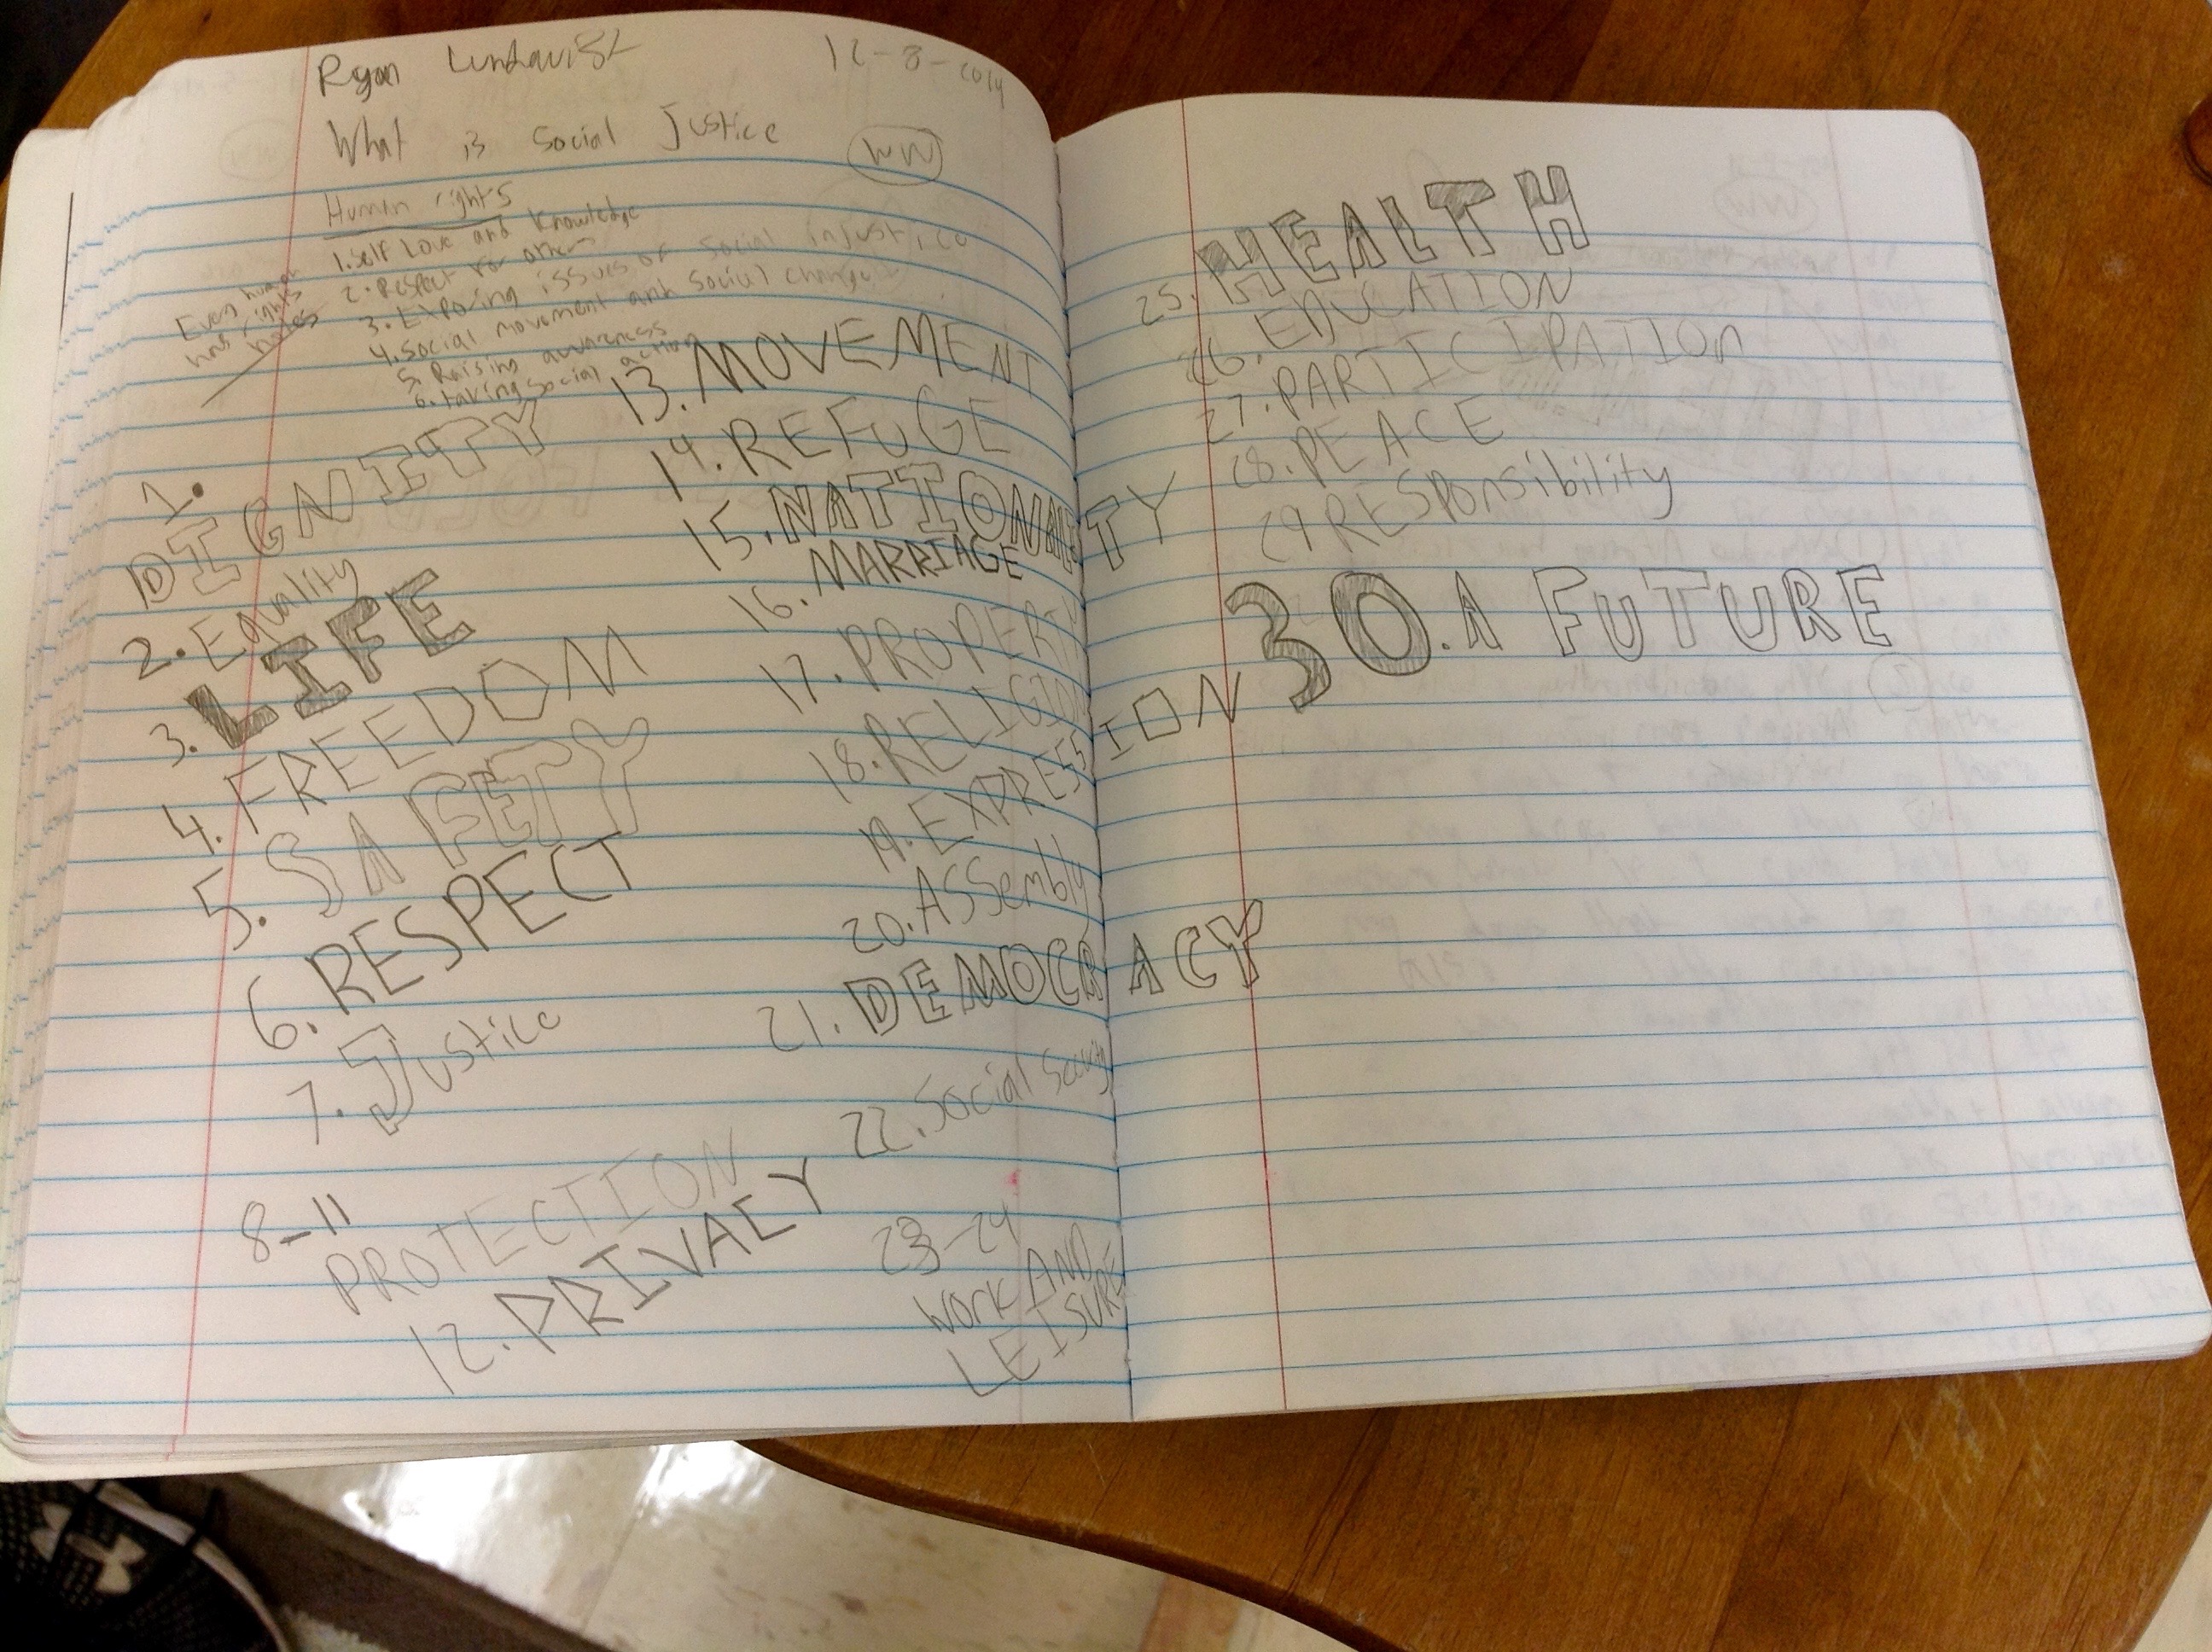 Ryan Lundquist 12-8-2014
What is Social Justice WW
Human rights
1. Self Love and Knowledge
2. Respect for others
3. Exposing issues of Social injustice
4. Social movement and Social change
5. Raising awareness
6. taking Social action
Every human
has rights
notes
1.
DIGNIETY
2. Equality
3. LIFE
4. FREEDOM
5. SAFETY
6. RESPECT
7. Justice
8-11
PROTECTION
12. PRIVACY
13. MOVEMENT
14. REFUGE
15. NATIONALITY
16. MARRIAGE
17. PROPERTY
18. RELIGION
19. EXPRESSION
20. ASSembly
21. DEMOCRACY
22. Social
23-24
Work AND
LEISURE
25. HEALTH
26. EDUCATION
27. PARTICIPATION
28. PEACE
29 RESponsibility
30. A FUTURE